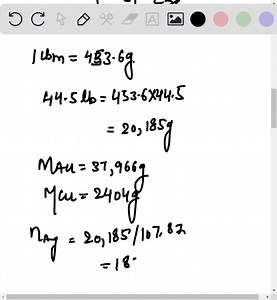 1 lbm = 453.6g
44.5 lb = 453.6X44.5
= 20,185g
MAu = 37,966g
MCu = 2404g
nAg = 20,185/107.87
= 18.